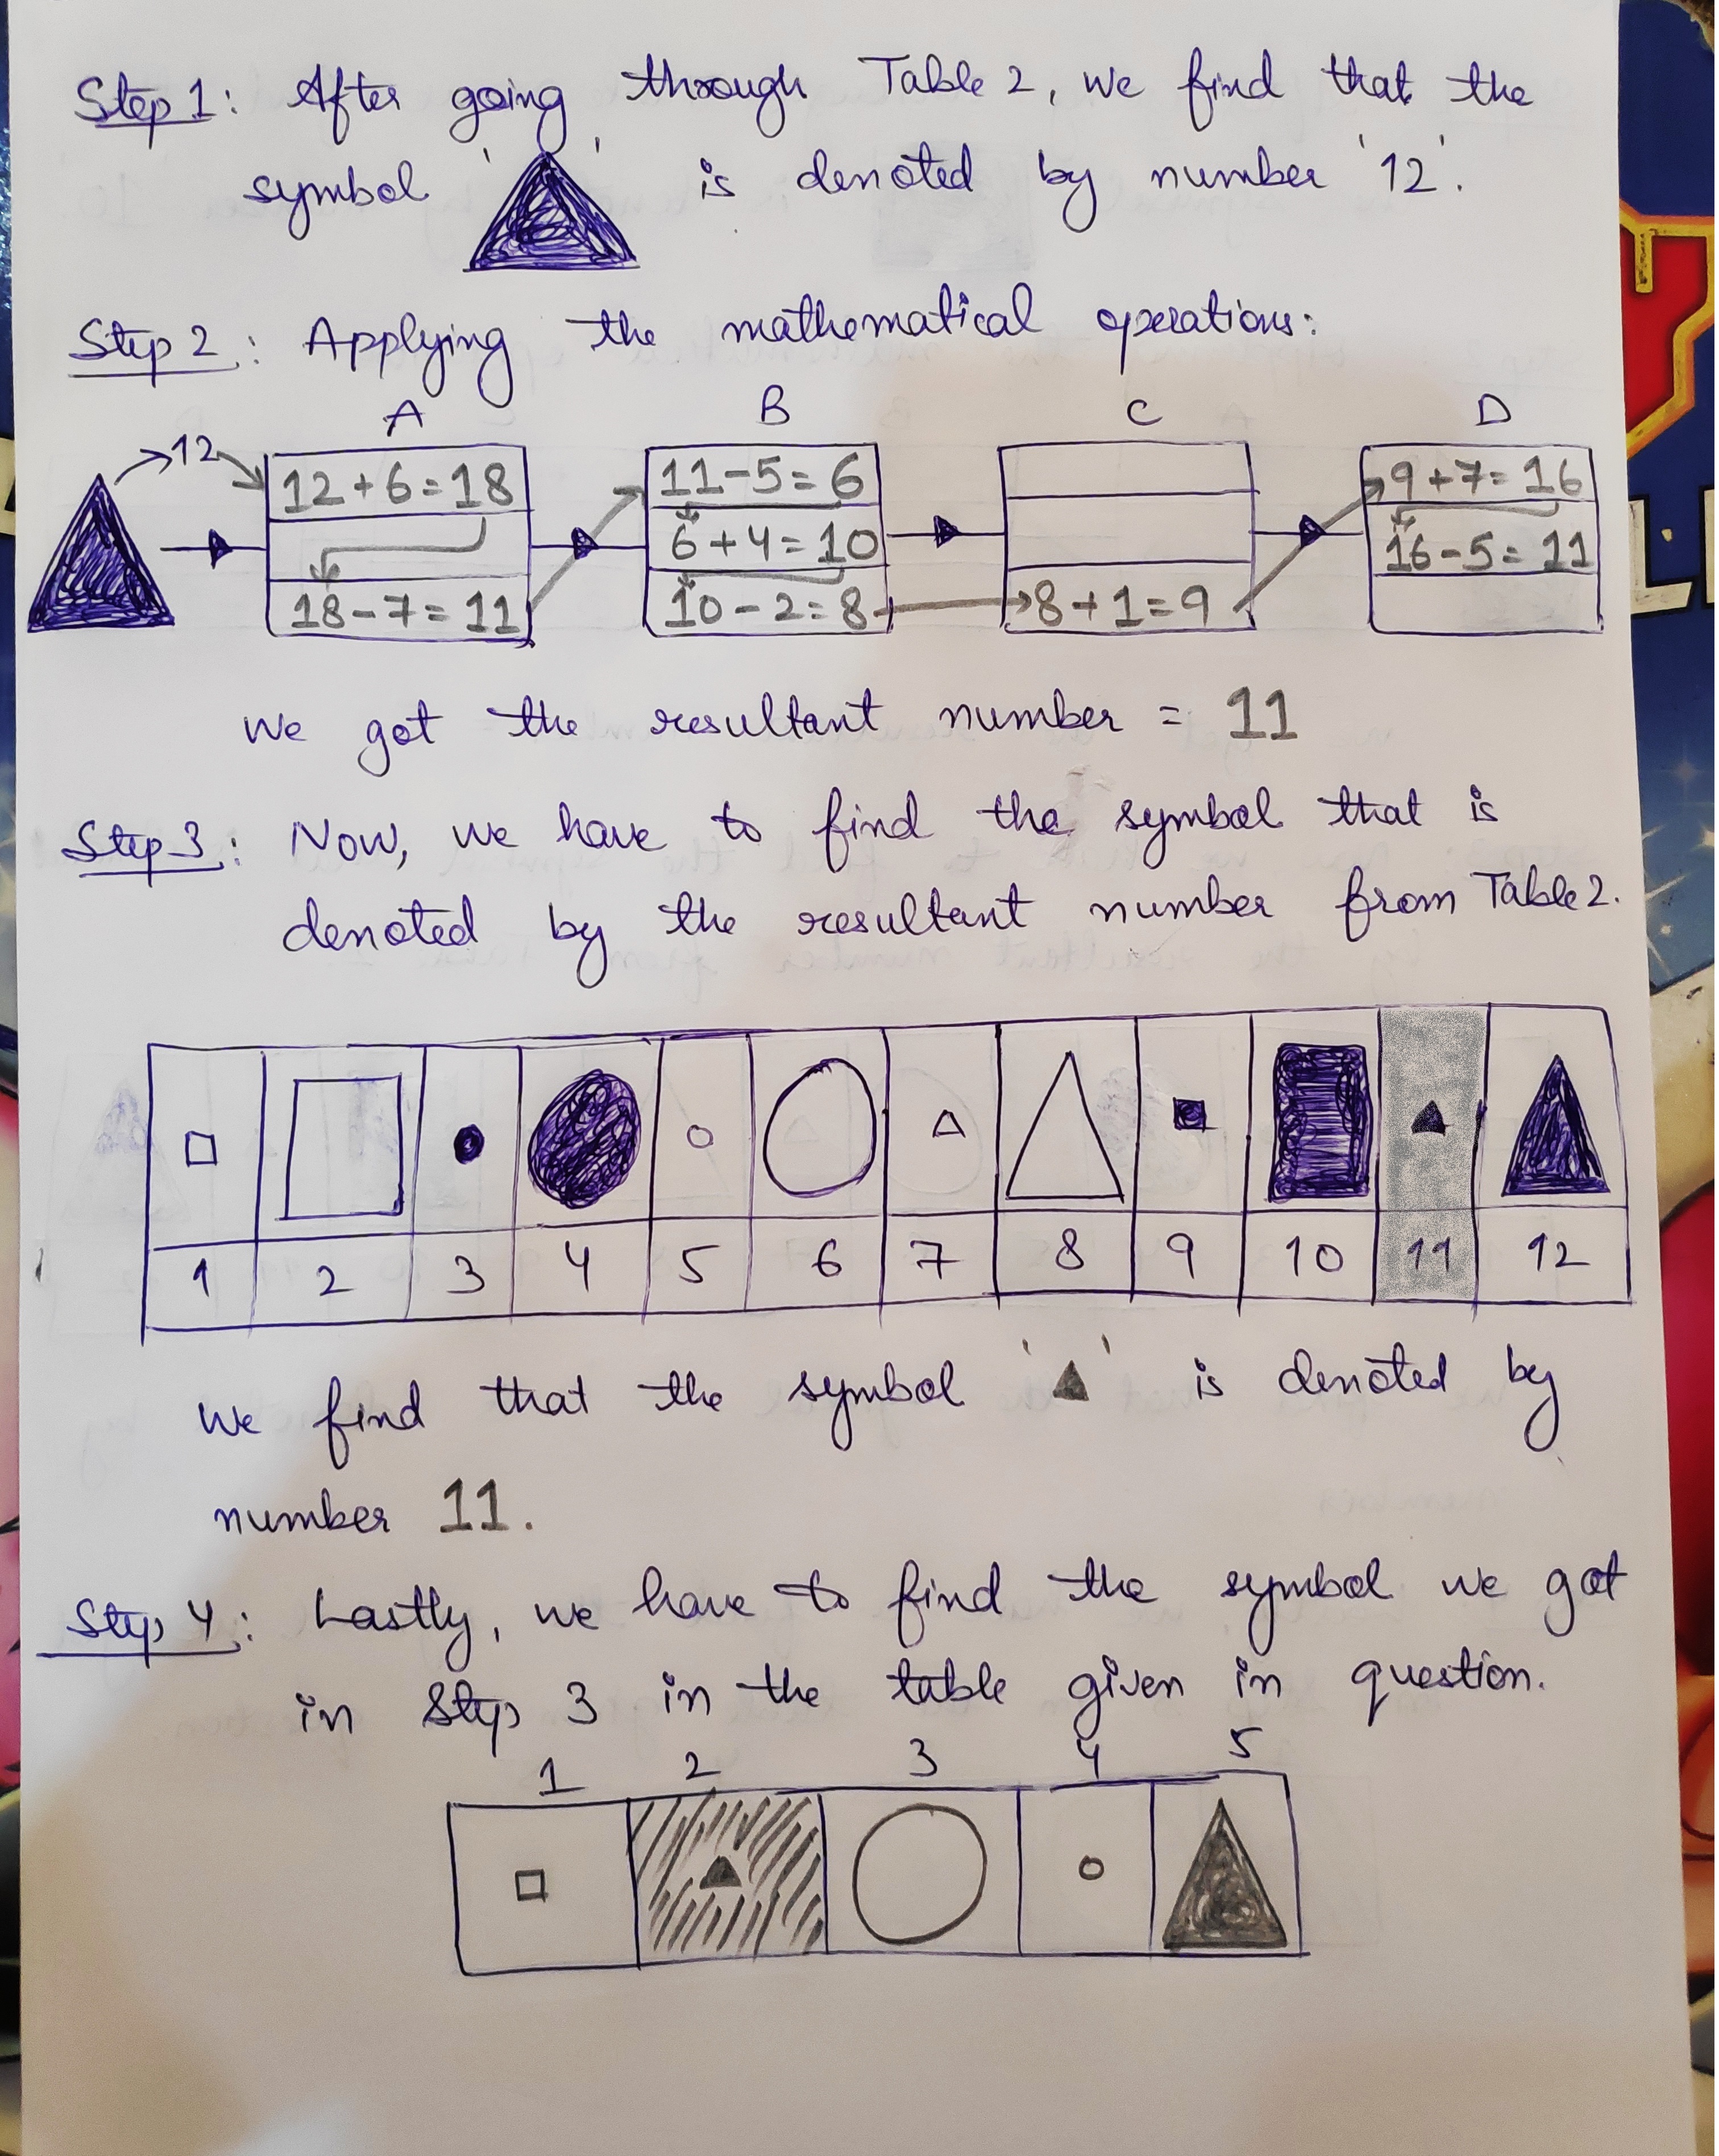 Step 1: After going through Table 2, we find that the
symbol ' ' is denoted by number '12'.
Step 2: Applying the mathematical operations:
A B C D
12
12+6=18 11-5=6 9+7=16
6+4=10 16-5=11
18-7=11 10-2=8 8+1=9
we got the resultant number = 11
Step 3: Now, we have to find the symbol that is
denoted by the resultant number from Table 2.
1 2 3 4 5 6 7 8 9 10 11 12
we find that the symbol ' ' is denoted by
number 11.
Step 4: Lastly, we have to find the symbol we got
in Step 3 in the table given in question.
1 2 3 4 5